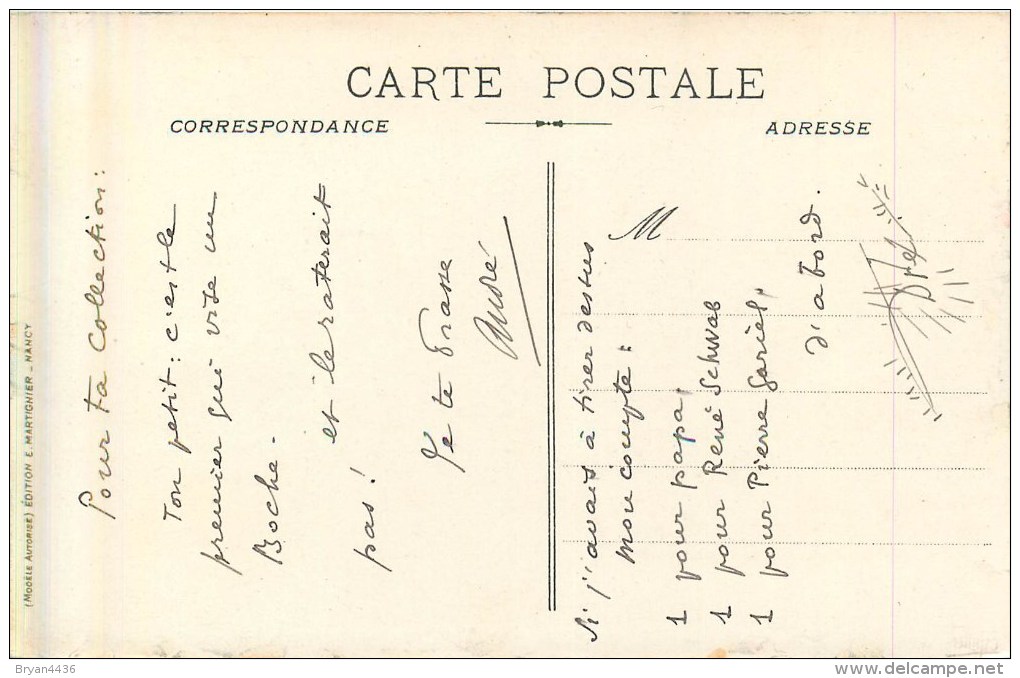 CARTE POSTALE
CORRESPONDANCE
ADRESSE
(MODÈLE AUTORISÉ) ÉDITION E. MARTIGNIER _ NANCY
Pour ta collection :
Ton petit : c'est le
premier qui vise un
Boche.
et il le raterait
pas !
Je te
André
M
Si j'avais à tirer dessus
mon compte :
1 pour papa,
1 pour René Schwab
1 pour Pierre Gariel,
d'abord.
Bryan4436
www.delcampe.net